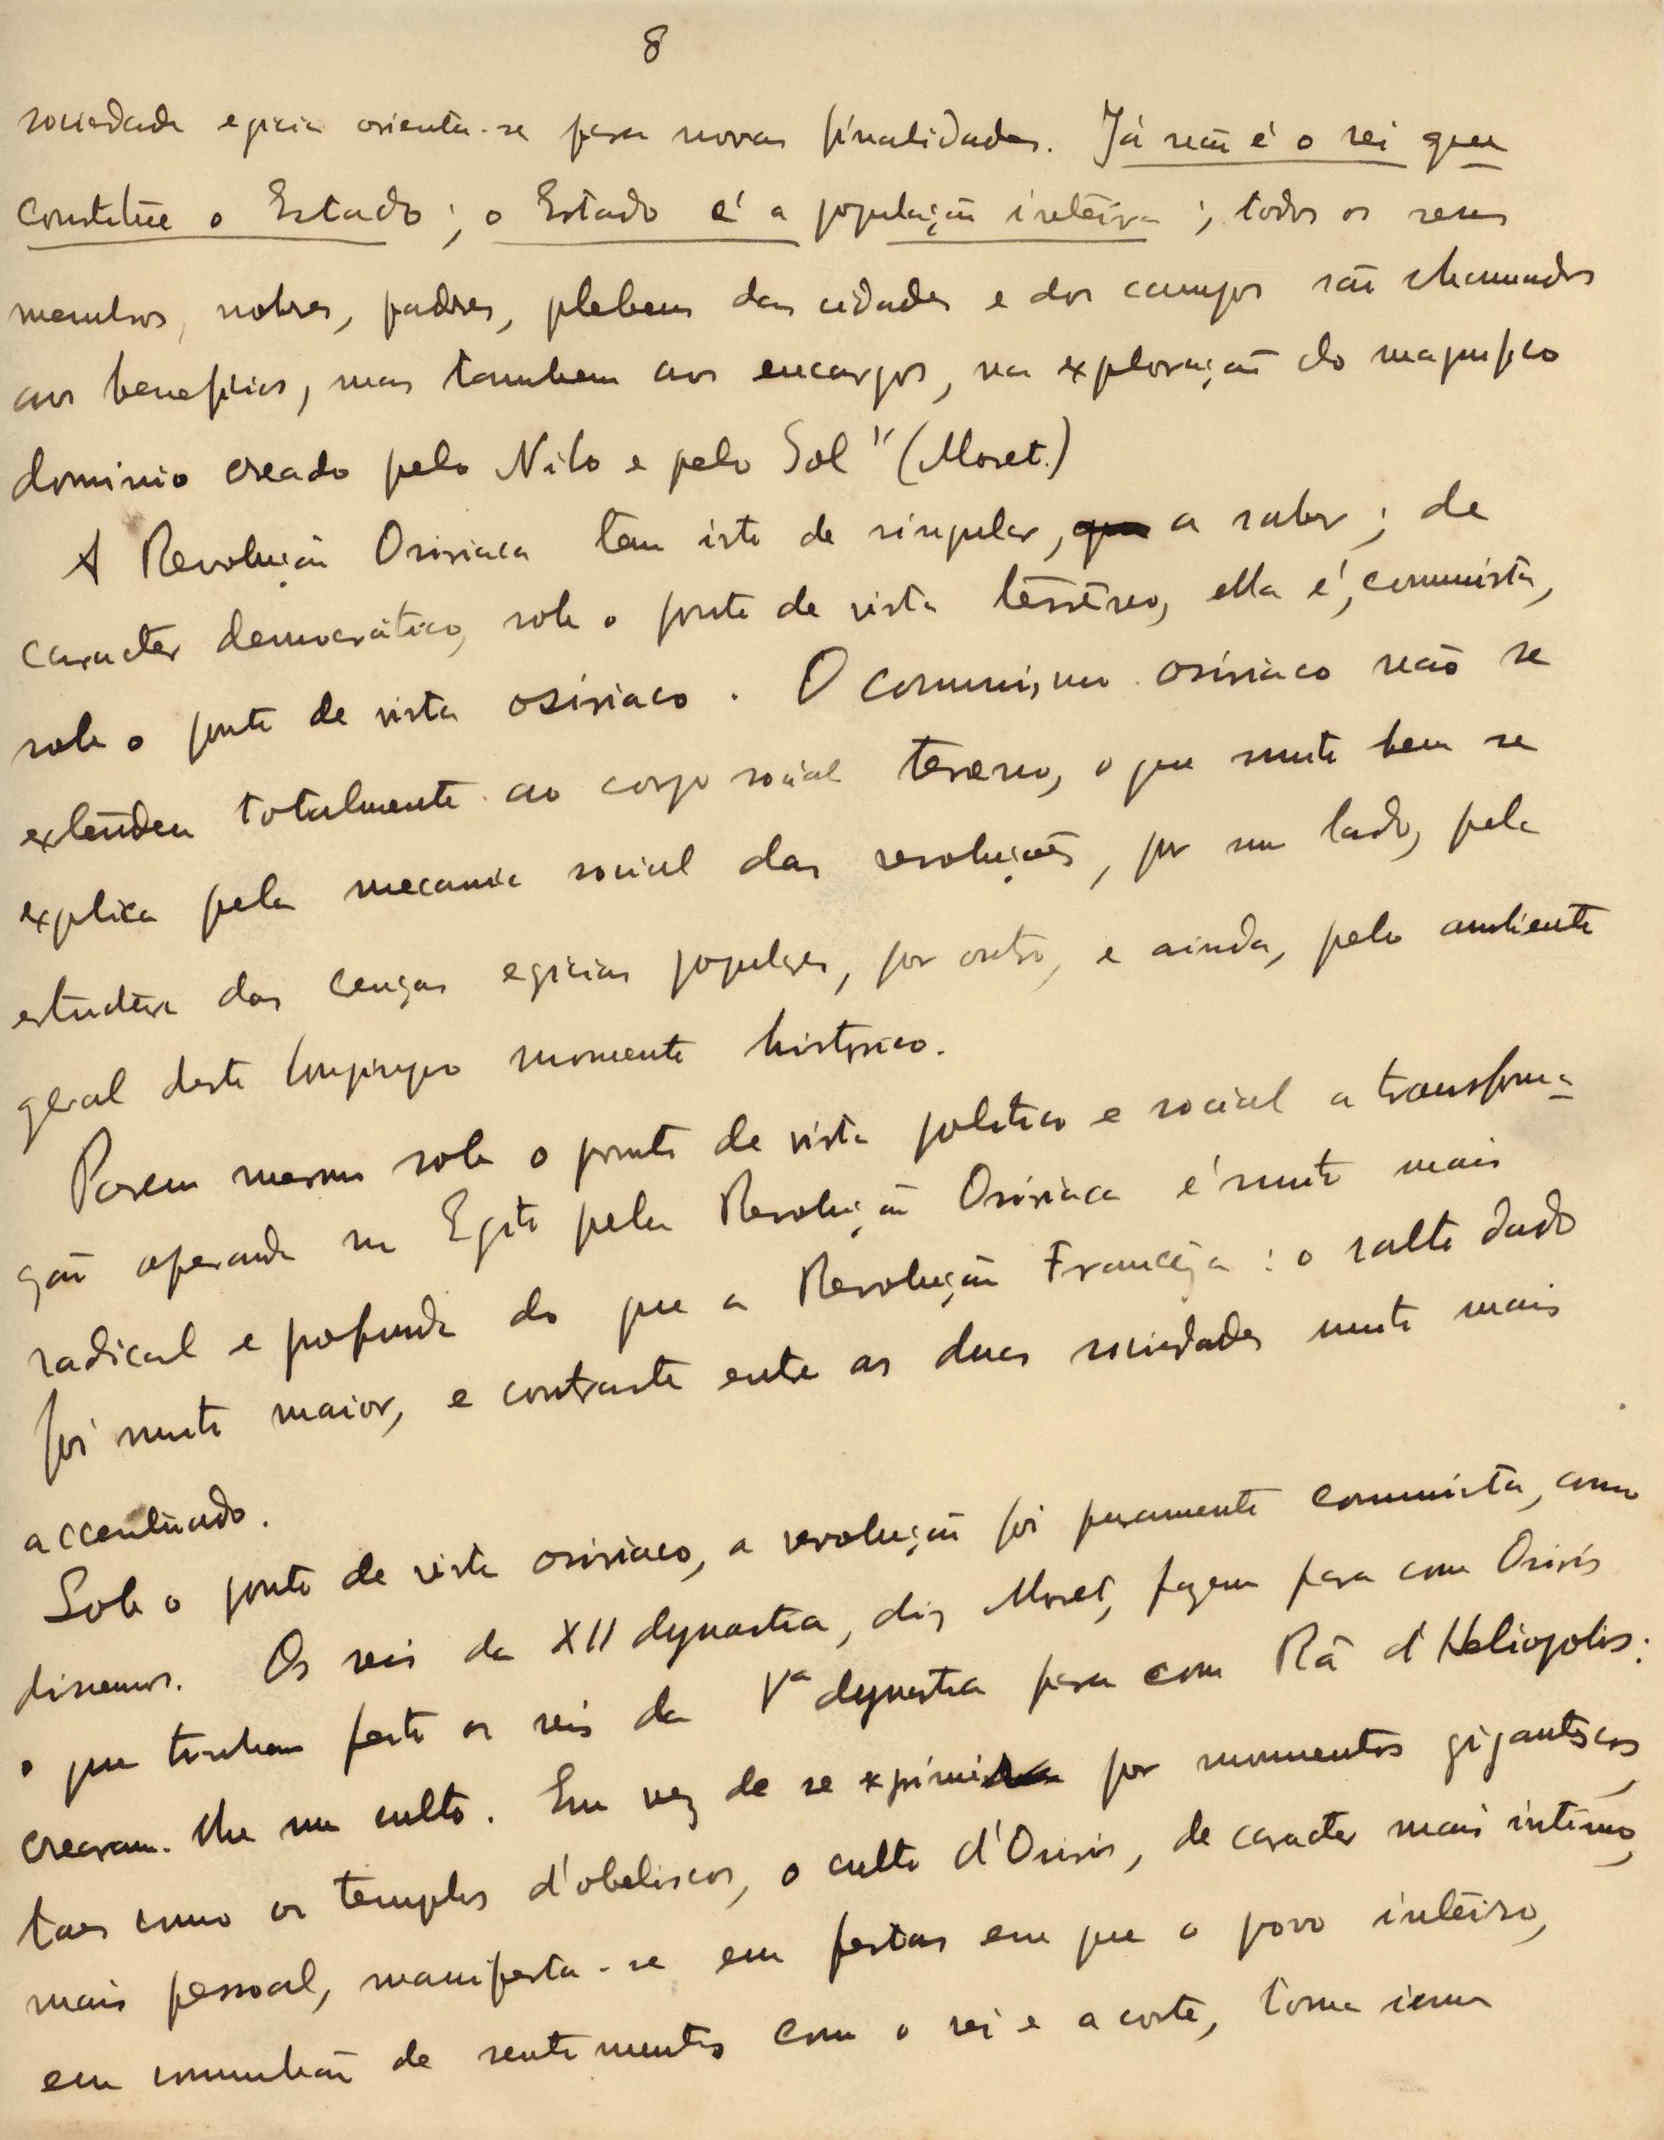 8
sociedade egicia orienta-se para novas finalidades. Já não é o rei que
constitúe o Estado; o Estado é a população inteira; todos os seus
membros, nobres, padres, plebeus das cidades e dos campos são chamados
aos beneficios, mas tambem aos encargos, na exploração do magnifico
dominio creado pelo Nilo e pelo Sol" (Moret.)
A Revolução Osiriaca tem isto de singular, a saber; de
caracter democrático, sob o ponto de vista terreno, ella é, comunista,
sob o ponto de vista osiriaco. O comunismo osiriaco não se
extendeu totalmente ao corpo social terreno, o que muito bem se
explica pela mecanica social das revoluções, por um lado, pela
estrutura das crenças egicias populares, por outro, e ainda, pelo ambiente
geral deste longinquo momento historico.
Porem mesmo sob o ponto de vista politico e social a transforma-
ção operada no Egito pela Revolução Osiriaca é muito mais
radical e profunda do que a Revolução Franceza: o salto dado
foi muito maior, e contraste entre as duas sociedades muito mais
accentuado.
Sob o ponto de vista osiriaco, a revolução foi puramente comunista, como
dissemos. Os reis da XII dynastia, diz Moret, fazem para com Osiris
o que tinham feito os reis da Vª dynastia para com Râ d'Heliopolis:
crearam-lhe um culto. Em vez de se exprimir por monumentos gigantescos,
taes como os templos d'obeliscos, o culto d'Osiris, de caracter mais intimo,
mais pessoal, manifesta-se em festas em que o povo inteiro,
em comunhão de sentimentos com o rei e a corte, toma